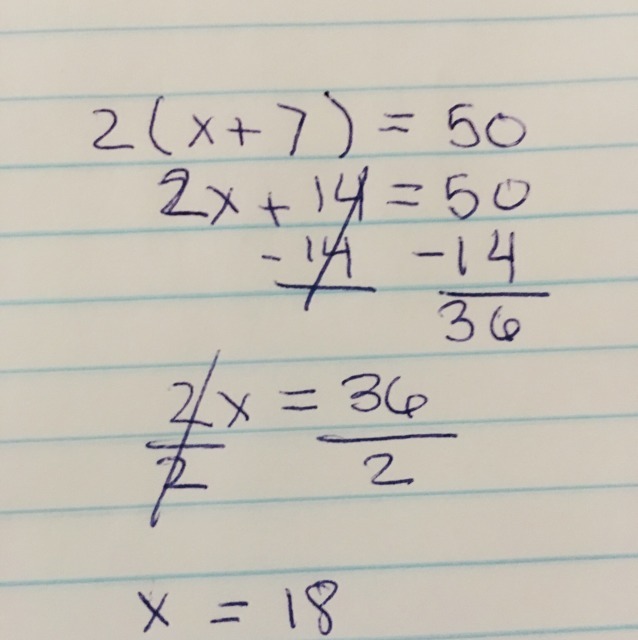 2(x+7) = 50
2x + 14 = 50
-14 -14
36
2x = 36
2 2
x = 18